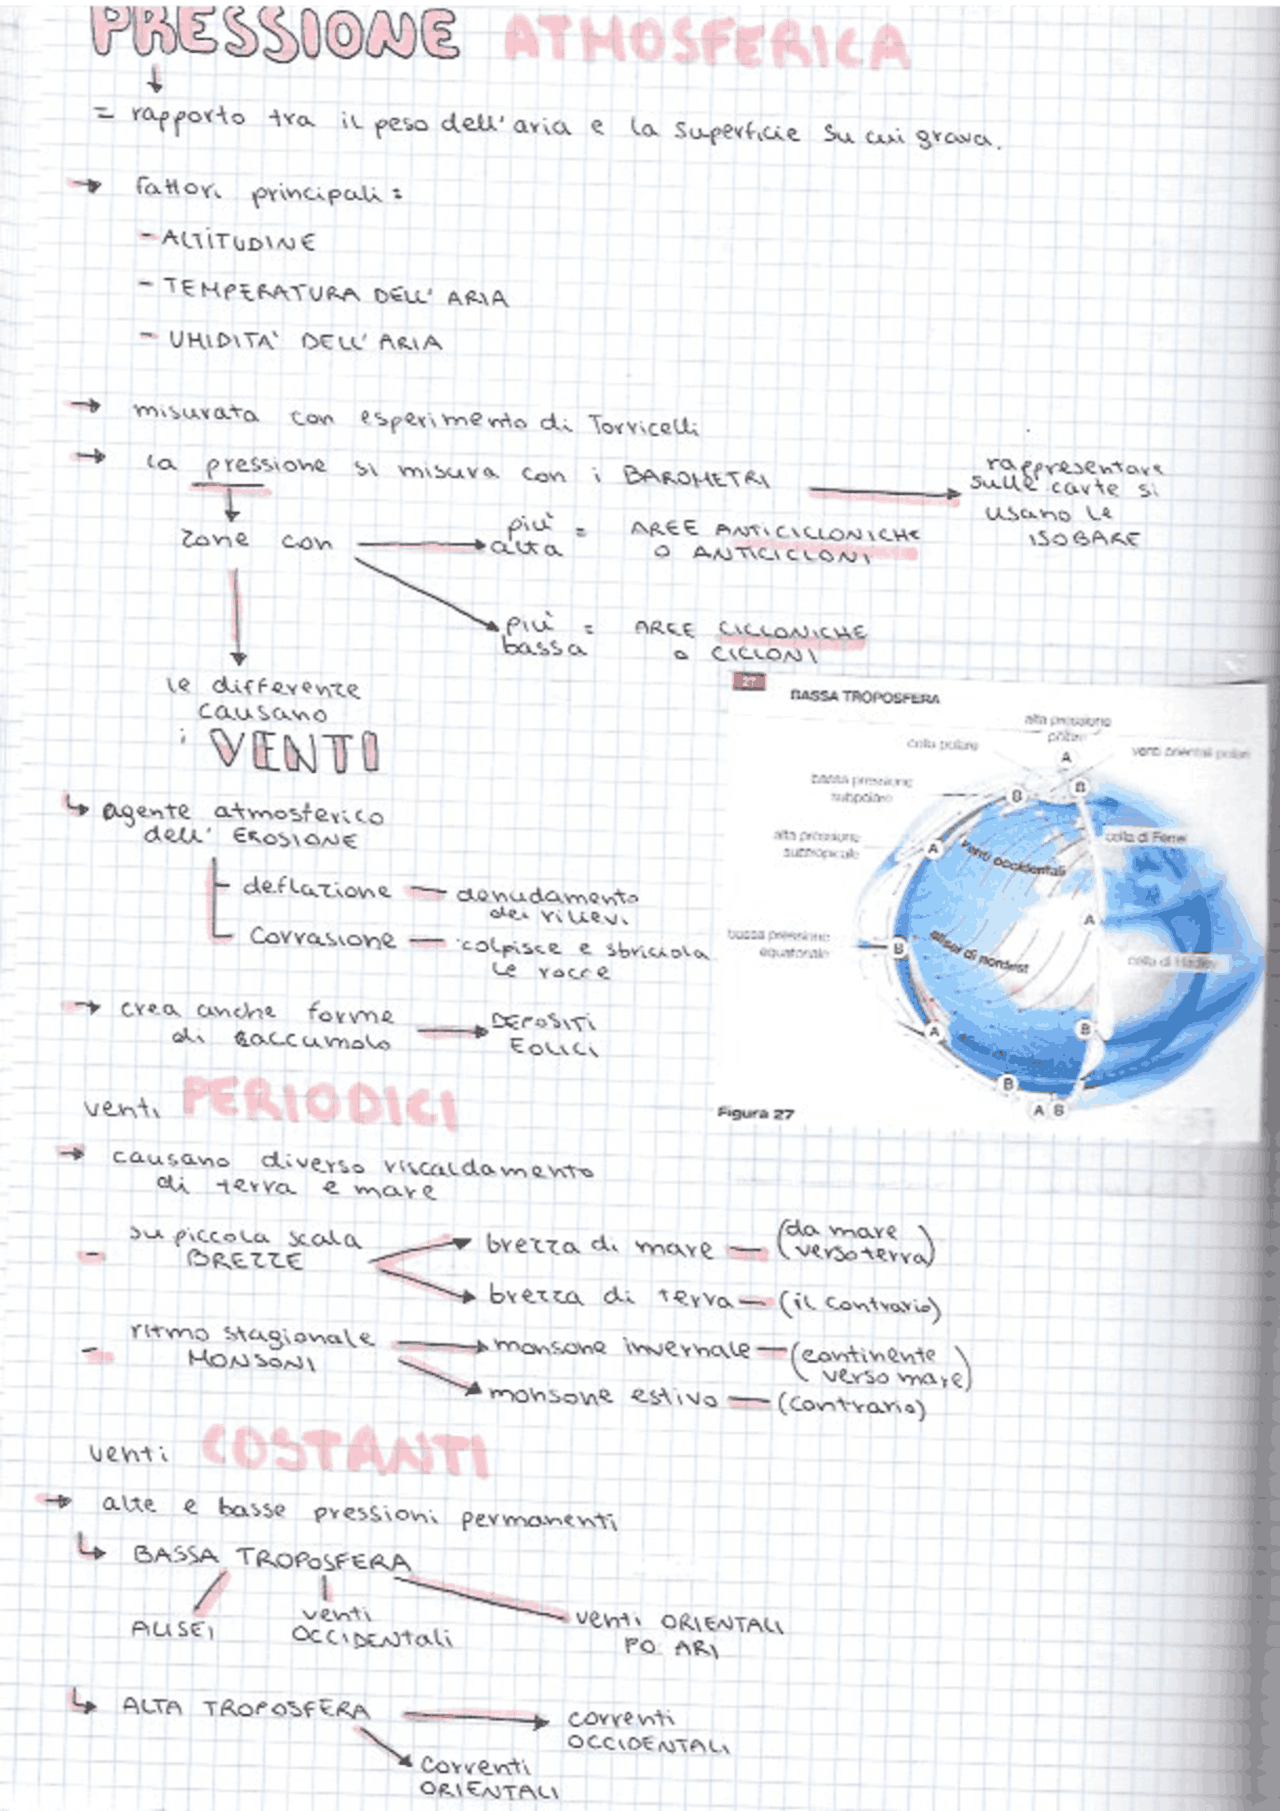 PRESSIONE ATMOSFERICA
= rapporto tra il peso dell'aria e la superficie su cui grava.
→ fattori principali:
- ALTITUDINE
- TEMPERATURA DELL'ARIA
- UMIDITA' DELL'ARIA
→ misurata con esperimento di Torricelli
→ la pressione si misura con i BAROMETRI →
rappresentare
sulle carte si
usano le
ISOBARE
zone con
più alta = AREE ANTICICLONICHE
O ANTICICLONI
più bassa = AREE CICLONICHE
o CICLONI
le differenze
causano
i VENTI
agente atmosferico
dell'EROSIONE
deflazione — denudamento
dei rilievi
corrasione — colpisce e sbriciola
le rocce
→ crea anche forme
di accumolo
→ DEPOSITI
EOLICI
27
BASSA TROPOSFERA
alta pressione
polare
cella polare
venti orientali polari
bassa pressione
subpolare
alta pressione
subtropicale
cella di Ferrel
venti occidentali
bassa pressione
equatoriale
alisei di nordest
cella di Hadley
A
B
B
A
A
B
A
B
B
A B
Figura 27
venti PERIODICI
→ causano diverso riscaldamento
di terra e mare
- su piccola scala
BREZZE
brezza di mare — (da mare
verso terra)
brezza di terra — (il contrario)
- ritmo stagionale
MONSONI
monsone invernale — (continente
verso mare)
monsone estivo — (contrario)
venti COSTANTI
→ alte e basse pressioni permanenti
BASSA TROPOSFERA
ALISEI
venti
OCCIDENTali
venti ORIENTALI
PO ARI
ALTA TROPOSFERA →
correnti
OCCIDENTALI
correnti
ORIENTALI